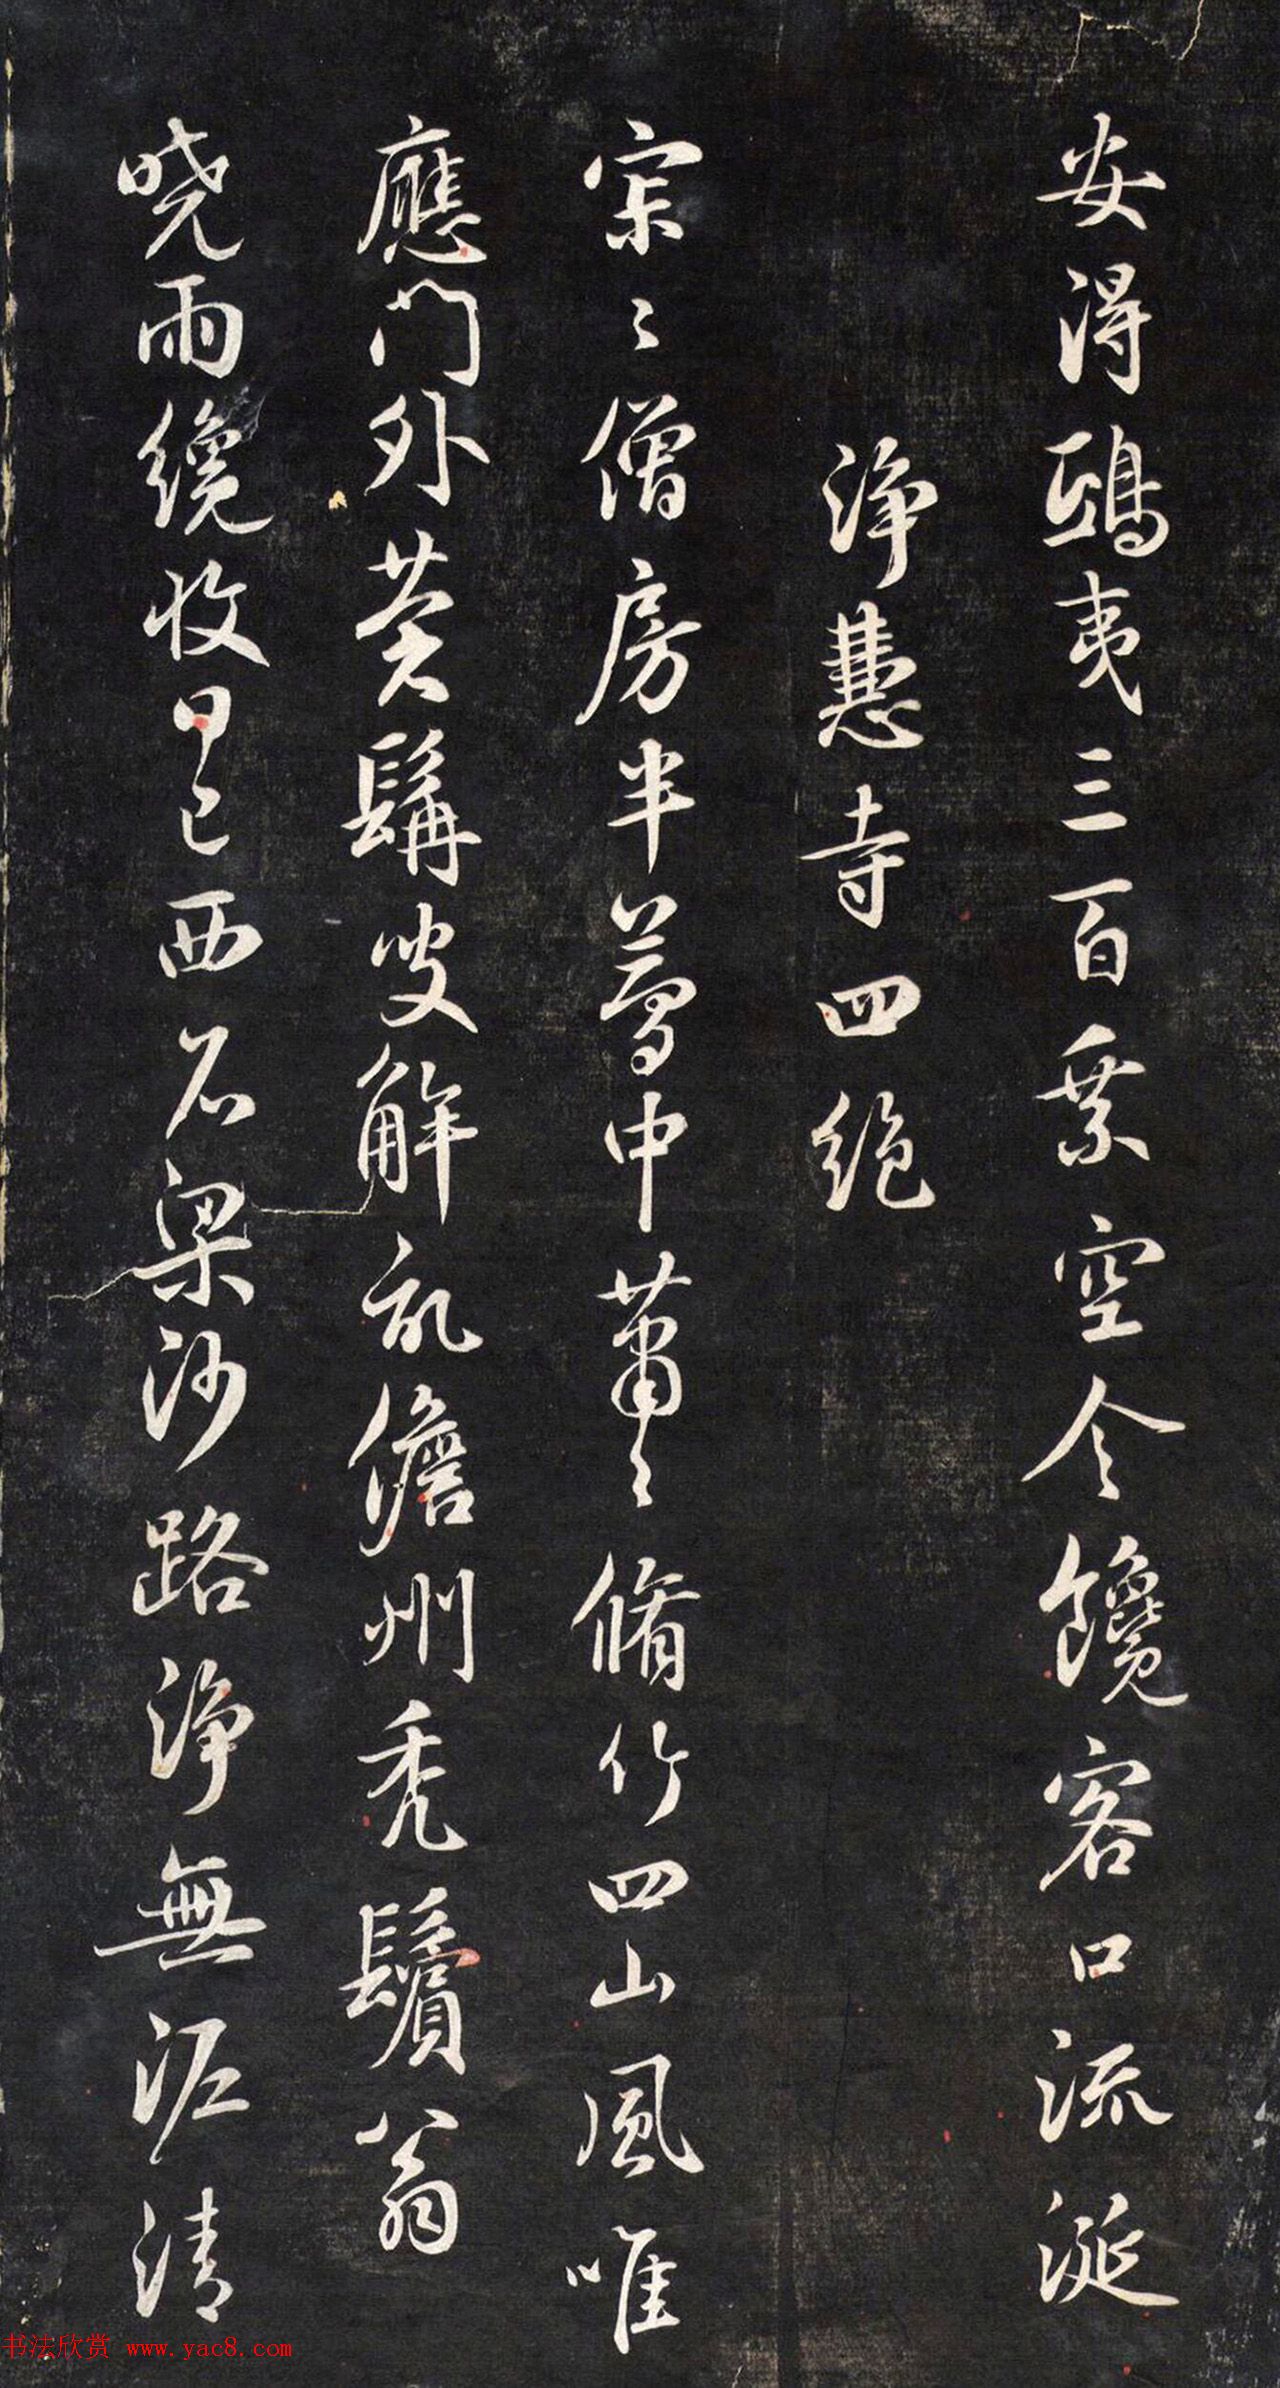 安得鴟夷三百乘空令饞客口流涎
淨慧寺四絕
寂〻僧房半夢中蕭〻脩竹四山風唯
應門外黃鬚叟解

儋州禿鬢翁
曉雨纔收日已西石梁沙路淨無泥清
书法欣赏 www.yac8.com